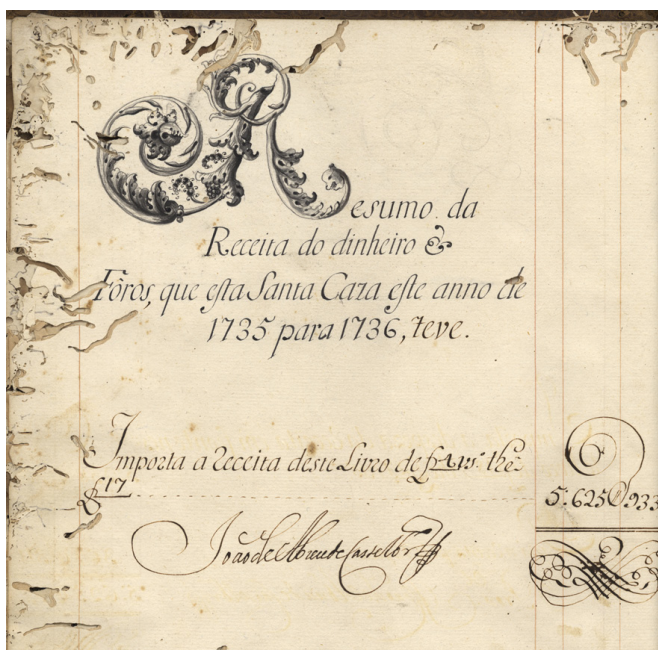 Resumo da
Receita do dinheiro &
Fôros, que esta Santa Caza este anno de
1735 para 1736, teve.
Importa a Receita deste Livro de f. 1 vs. the
f. 17
5.625@933
João de Abreu de Castello Br.